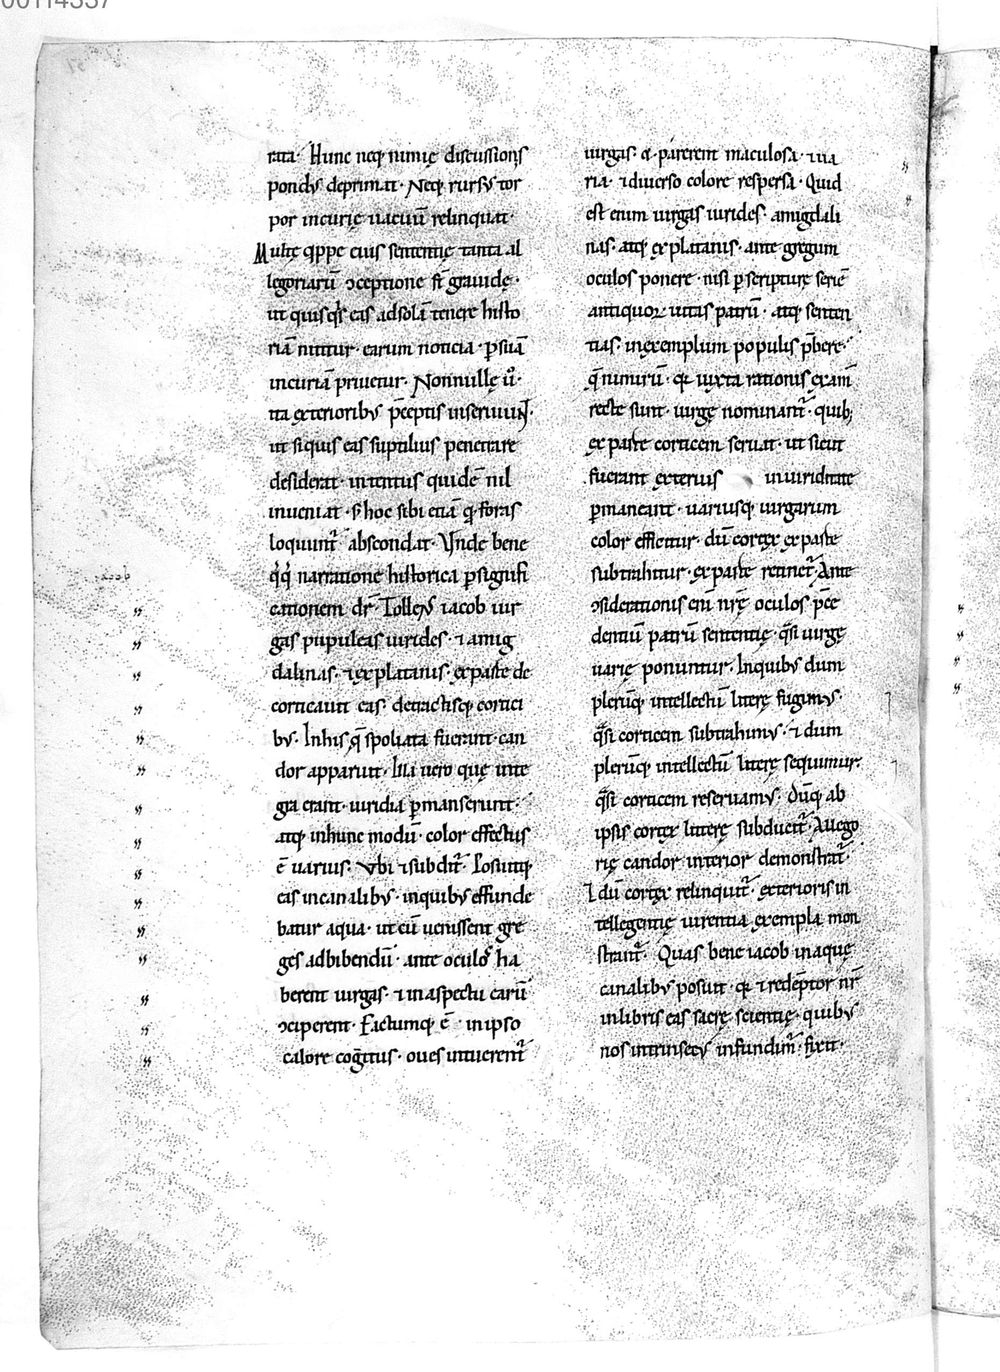 rata· Hunc neq; nimię discussionis
pondus deprimat· Neq; rursus tor
por incurię uacuū relinquat·
Multę q̇ppe eius sententię tanta al
legoriarū ↄceptione st̄ grauidę·
ut quisq̇s eas ad solā tenere histo
riā nititur· earum noticia p̱ suā
incuriā priuetur· Nonnullę ů·
ita exterioribꝰ p̄ceptis inseruiunt·
ut siquis eas suptilius penetrare
desiderat· intentus quidē nil
inueniat· s; hoc sibi etiā qd̄ foras
loquunt̄ abscondat· Vnde bene
q̇q; narratione historica p̱ signifi
cationem dr̄· Tollens iacob uir
gas pupuleas uirides· ⁊ amig
dalinas· ⁊ ex platanis· ex parte de
corticauit eas· detractisq; cortici
bꝰ· In his q̄ spoliata fuerant· can
dor apparuit· Illa uero quę inte
gra erant· uiridia p̱manserunt·
atq; in hunc modū· color effectus
ē uarius· Vbi ⁊ subdit̄· Posuitq;
eas in canalibꝰ· in quibꝰ effunde
batur aqua· ut cū uenissent gre
ges ad bibendū· ante oculos ha
berent uirgas· ⁊ in aspectu earū
ↄciperent· Factumq; ē· in ipso
calore cogitus· oues intuerent̄
uirgas· & parerent maculosa· ⁊ ua
ria· ⁊ diuerso colore respersa· Quid
est enim uirgas uirides· amigdali
nas· atq; ex platanis· ante gregum
oculos ponere· nisi p̱ scripturę seriē
antiquoꝝ uitas patrū· atq; senten
tias· in exemplum populis p̄bere·
q̄ nimirū· quia iuxta rationis exam̄
recte sunt· uirgę nominant̄· quib;
ex parte corticem seruat· ut sicut
fuerant exterius in uiriditate
p̱maneant· uariusq; uirgarum
color efficitur· dū cortex ex parte
subtrahitur· ex parte retinet̄· Ante
ↄsiderationis eni nr̄ę oculos p̄ce
dentiū patrū sententię· q̄si uirgę
uarię ponuntur· In quibꝰ dum
plerūq; intellectū litterę fugimꝰ·
q̄si corticem subtrahimꝰ· ⁊ dum
plerūq; intellectū litterę sequimur·
q̄si corticem reseruamꝰ· Dūq; ab
ipsis cortex litterę subducit̄· Allego
rię candor interior demonstrat̄·
⁊ dū cortex relinquit̄· exterioris in
tellegentię uirentia exempla mon
strant̄· Quas bene iacob in aquę
canalibꝰ posuit· quia ⁊ redēptor nr̄
in libris eas sacrę scientię· quibꝰ
nos intrinsecꝰ infundim̄· fixit·